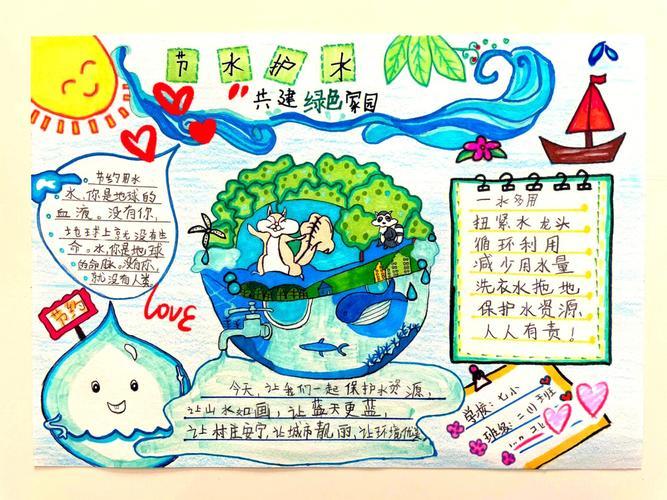 节水护水
共建绿色家园
节约用水
水,你是地球的
血液。没有你,
地球上就没有生
命。水,你是地球
的命脉。没有你,
就没有人类
LOVE
节约
一水多用
扭紧水龙头
循环利用
减少用水量
洗衣水拖地
保护水资源
人人有责!
今天,让我们一起保护水资源,
让山水如画,让蓝天更蓝,
让村庄安宁,让城市靓丽,让环境优美
学校:七小
班级:二